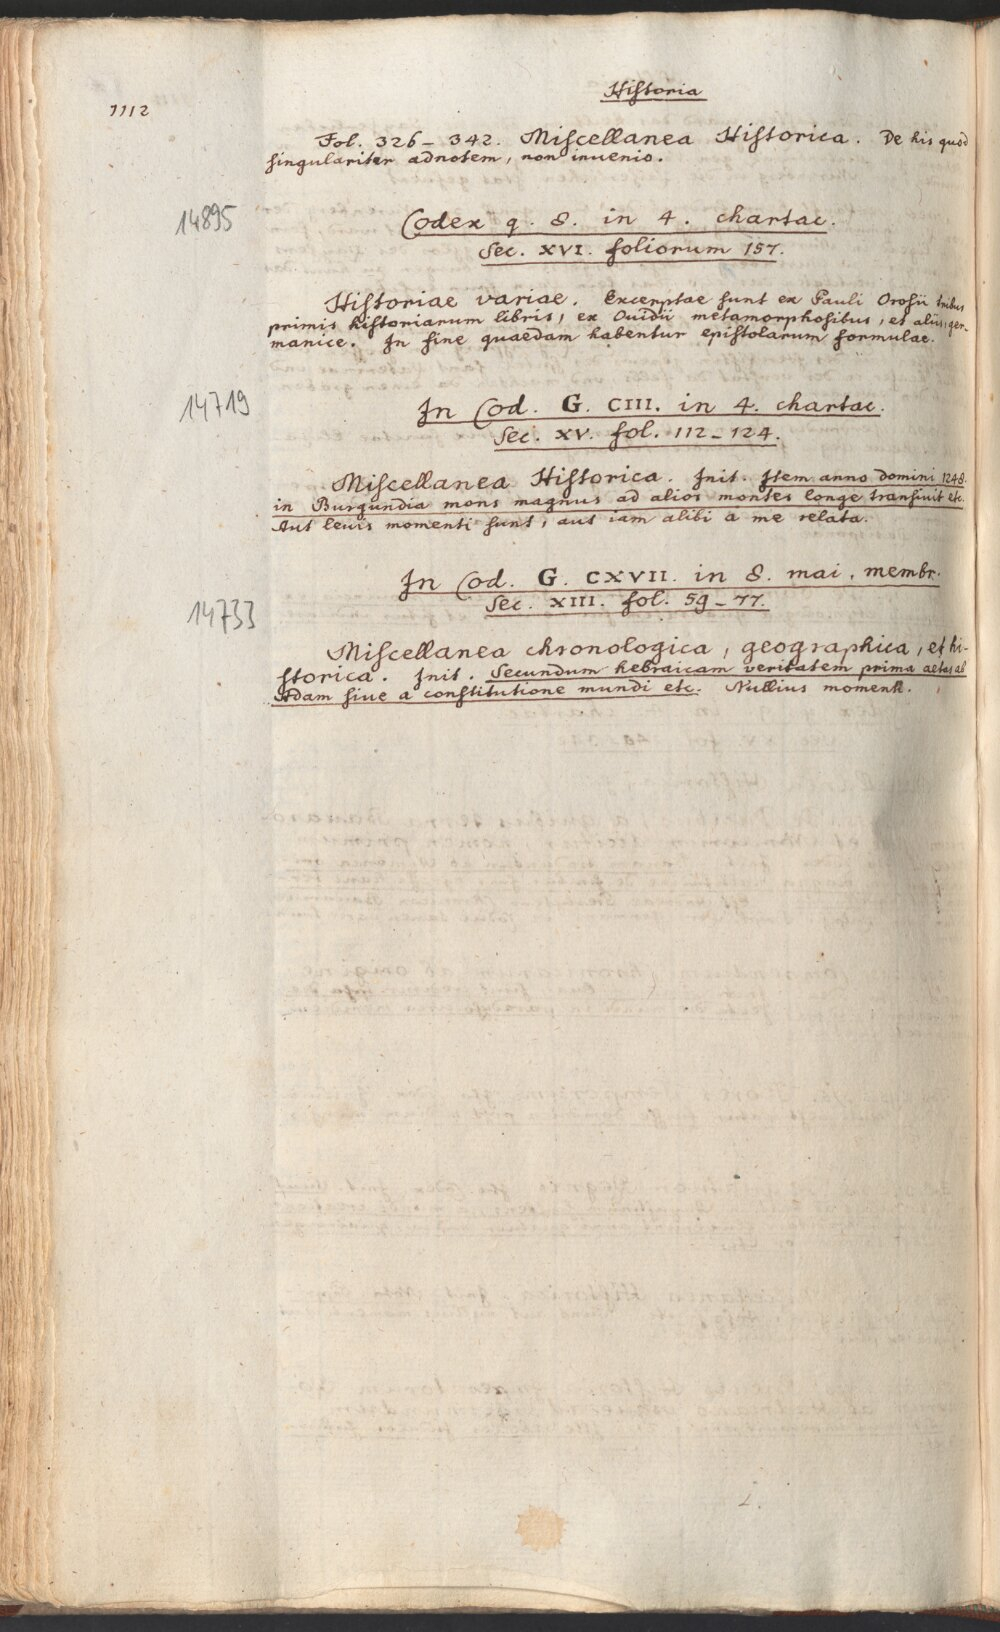 Historia
1112
Fol. 326 - 342. Miscellanea Historica. De his quod
singulariter adnotem, non invenio.
14895
Codex q. 8. in 4. chartac.
Sec. XVI. foliorum 157.
Historiae variae. Excerptae sunt ex Pauli Orosii tribus
primis historiarum libris, ex Ouidii metamorphosibus, et aliis, ger-
manice. In fine quaedam habentur epistolarum formulae.
14719
In Cod. G. CIII. in 4. chartac.
Sec. XV. fol. 112 - 124.
Miscellanea Historica. Init. Item anno domini 1248.
in Burgundia mons magnus ad alios montes longe transiuit etc.
Aut leuis momenti sunt, aut iam alibi a me relata.
In Cod. G. CXVII. in 8. mai. membr.
14733
Sec. XIII. fol. 59 - 77.
Miscellanea chronologica, geographica, et hi-
storica. Init. Secundum hebraicam veritatem prima aetas ab
Adam siue a constitutione mundi etc. Nullius momenti.